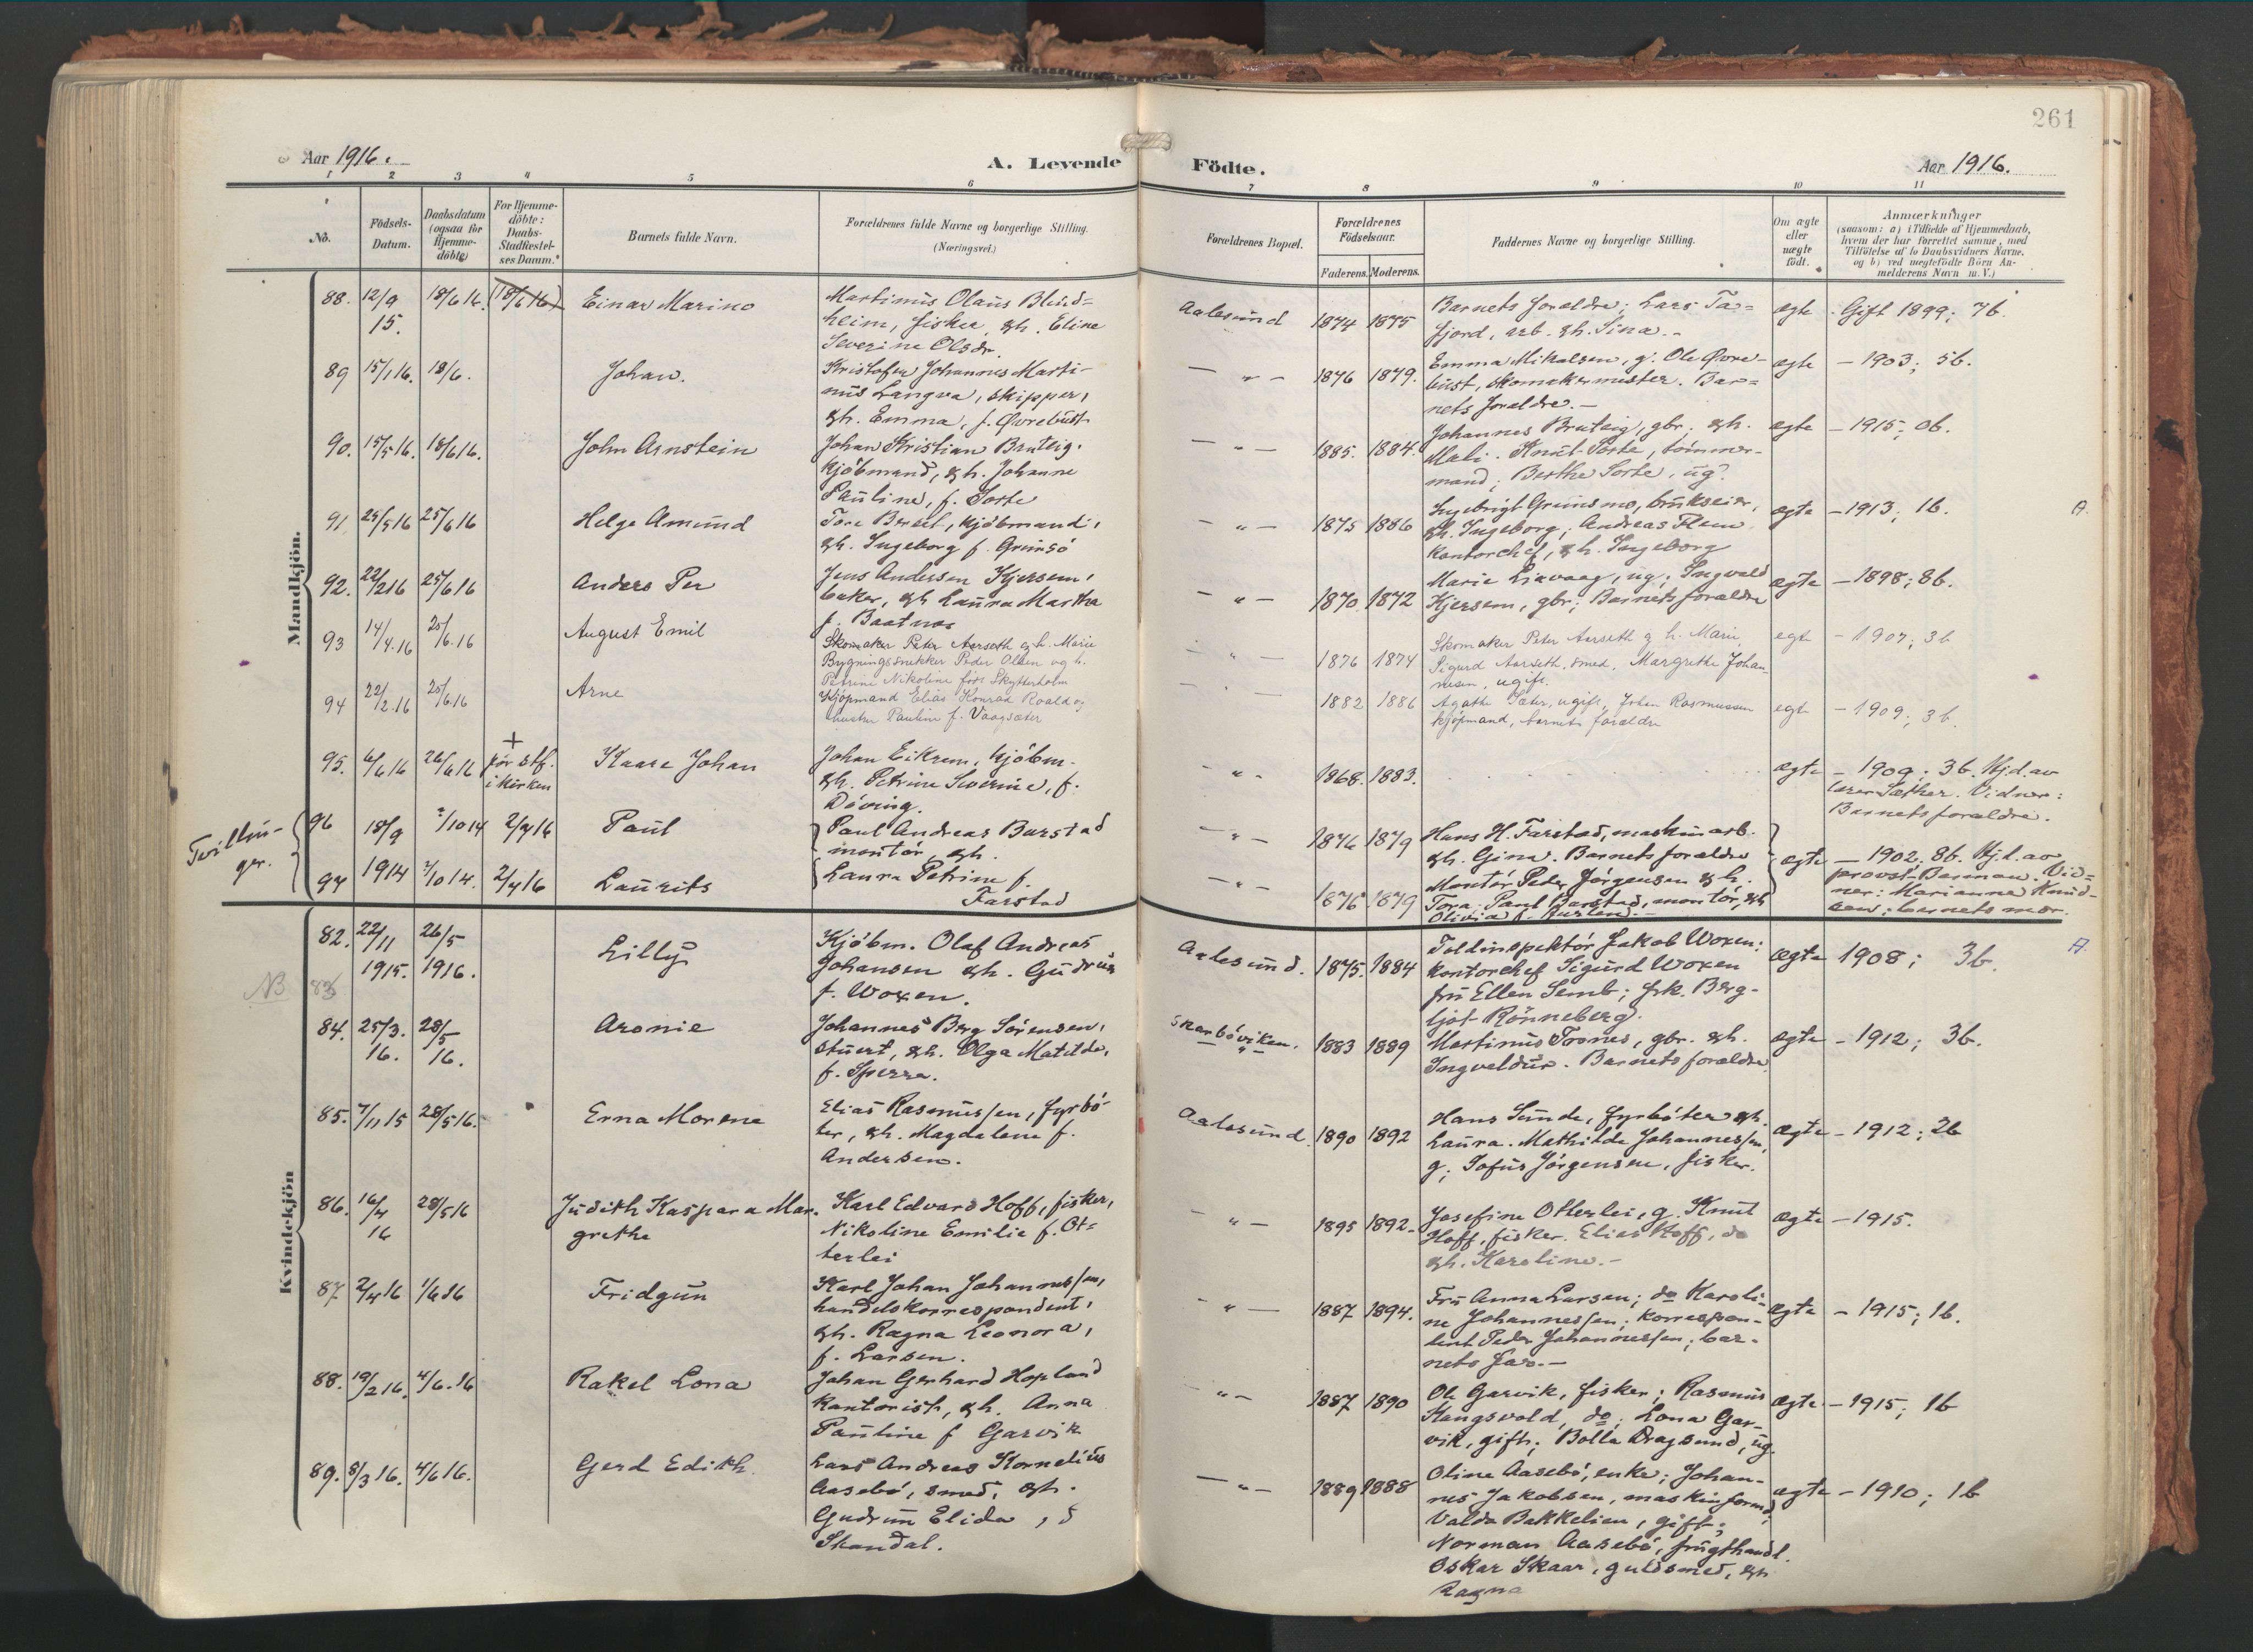 261
Aar 1916.
A. Levende
Födte.
Aar 1916.
1 2 3 4 5 6 7 8 9 10 11
No.
Födsels-
Datum.
Daabsdatum
(ogsaa for
Hjemme-
döbte)
For Hjemme-
döbte:
Daabs-
Stadfæstel-
ses Datum.
Barnets fulde Navn.
Forældrenes fulde Navne og borgerlige Stilling.
(Næringsvei.)
Forældrenes Bopæl.
Forældrenes
Födselsaar.
Faderens. Moderens.
Faddernes Navne og borgerlige Stilling.
Om ægte
eller
uægte
födt.
Anmærkninger
(saasom: a) i Tilfælde af Hjemmedaab,
hvem der har forrettet samme, med
Tilföielse af to Daabsvidners Navne,
og b) ved uægtefödte Börn An-
melderens Navn m. V.)
Mandkjön.
88. 12/9 15. 18/6 16. (18/6 16) Einar Marino
Martinus Olaus Blind-
heim, fisker, &h. Eline
Severine Olsdr.
Aalesund 1874 1875
Barnets foraldre; Lars Ta-
fjord, arb. &h. Sina.-
ægte Gift 1899; 7b.
89 15/1 16. 18/6. Johan.
Kristofer Johannes Marti-
nus Langva, skipper,
&h. Emma, f. Øvrebust
— " — 1876 1879.
Emma Mikalsen, g. Ole Øvre-
bust, skomakermester. Bar-
nets foraldre.—
ægte — 1903; 5b.
90. 15/5 16. 18/6 16. John Arnstein
Johan Kristian Bruteig.
Kjöbmand, &h. Johanne
Pauline, f. Sorte
— " — 1885. 1884.
Johannes Bruteig, gbr. &h.
Mali. Knut Sorte, tömmer-
mand; Berthe Sorte, ug.
ægte — 1915; 0b.
91 25/5 16 25/6 16 Helge Amund
Tore Berset, kjöbmand,
&h. Ingeborg f. Grimsö
— " — 1875 1886
Ingebrigt Grimsmo, brukseier,
&h. Ingeborg; Andreas Flem
kontorchef, &h. Ingeborg
ægte — 1913; 1b. A.
92. 22/2 16 25/6 16 Anders Per
Jens Andersen Kjersem,
baker, &h Laura Martha
f. Baatnes
— " — 1870. 1872
Marie Liavaag, ug; Ingvald
Kjersem, gbr; Barnets foraldre
ægte — 1898; 8b.
93 14/4.16 25/6.16 August Emil
Skomaker Peter Aarseth og h. Marie
Bygningssnekker Peder Olsen og h.
Petrine Nikoline född Skytterholm
— " — 1876 1874
Skomaker Peter Aarseth og h. Marie
Sigurd Aarseth, smed, Margrethe Johan-
nesen, ugift.
egte — 1907; 3b
94 22/2.16 25/6.16 Arne
Kjøpmand Elias Konrad Roald og
hustru Pauline f. Vaagsæter
1882 1886
Agathe Sæter, ugift, Johan Rasmussen
kjøpmand, barnets forældre
egte — 1909; 3b.
95. 6/6 16 26/6 16
för stf.
i kirken
Kaare Johan
Johan Eikrem, kjöbm.
&h. Petrine Severine, f.
Döving.
— " - 1868. 1883.
ægte — 1909; 3b. Hjd. av
lærer Sæther. Vidner:
Barnets foraldre.
Tvillin-
ger.
96 18/9 2/10 14 2/7 16 Paul
97 1914 2/10 14. 2/7 16 Laurits
Paul Andreas Barstad
montör &h.
Laura Petrine f.
Farstad
— " - 1876 1879
— " - 1876 1879
Hans H. Farstad, maskinarb.
&h. Gina. Barnets forældre
Montör Peder Jörgensen &h.
Tora; Paul Barstad, montör, &h
Olivia f.
ægte — 1902; 8b. Hjd. av
provst Berman. Vid-
ner: Marianne Knud-
sen; barnets mor.
Kvindekjön
82. 22/11 1915. 26/5 1916. Lilly
Kjöbm. Olaf Andreas
Johansen &h. Gudrun
f. Woxen.
Aalesund. 1875. 1884
Toldinspektör Jakob Woxen;
kontorchef Sigurd Woxen
fru Ellen Semb; frk. Berg-
ljot Rönneberg.
ægte 1908; 3b. A
NB 83
84. 25/3. 16. 28/5 16. Aronie
Johannes Berg Sörensen,
stuert, &h. Olga Matilde,
f. Sperre.
Skarbövi​ken. 1883 1889
Martinus Toones, gbr. &h.
Ingveldur. Barnets forældre
ægte — 1912; 3b.
85. 7/11 15 28/5 16. Erna Morene
Elias Rasmussen, fyrbö-
ter, &h. Magdalene f.
Andersen.
Aalesund. 1890 1892
Hans Sunde, fyrböter &h.
Laura. Mathilde Johannessen,
g; Sofus Jörgensen, fisker.
ægte — 1912; 2b
86. 16/4 16 28/5 16 Judith Kaspara Mar-
grethe
Karl Edvard Hoff, fisker,
Nikoline Emilie f. Ot-
terlei
— " — 1895 1892.
Josefine Otterlei, g. Knut
Hoff, fisker. Elias Hoff, do
&h. Karoline.—
ægte — 1915.
87. 2/4 16 1/6 16 Fridgun
Karl Johan Johannessen,
handelskorrespondent,
&h. Ragna Leonora,
f. Larsen.
— " — 1887 1894.
Fru Anna Larsen; do Karoli-
ne Johannessen; korrespon-
dent Peder Johannessen; bar-
nets far.—
ægte — 1915; 1b.
88. 19/2 16. 4/6. 16 Rakel Lona
Johan Gerhard Hopland
kontorist, &h. Anna
Pauline f Garvik
— " - 1887 1890
Ole Garvik, fisker; Rasmus
Stangsvold, do; Lona Gar-
vik, gift; Bolla Dragsund, ug.
ægte — 1915; 1b
89. 8/3 16. 4/6 16. Gerd Edith.
Lars Andreas Kornelius
Aasebö, smed, &h.
Gudrun Elida, f
Skandal.
— " - 1889 1888
Oline Aasebö, enke; Johan-
nes Jakobsen, maskinformd,
Valda Bakkelien, gift;
Norman Aasebö, frugthandl.
Oskar Skaar, guldsmed, &h
Ragna
ægte — 1910; 1b